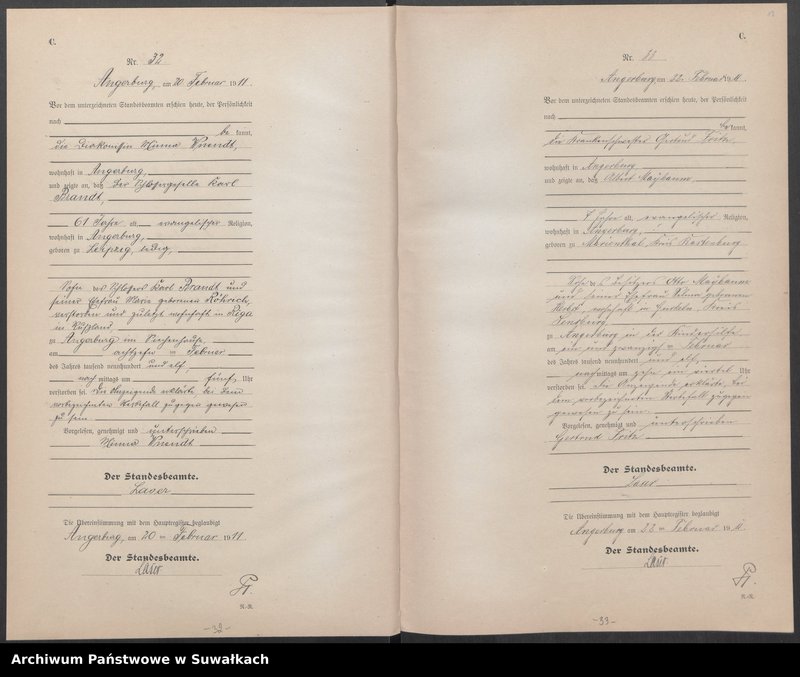 C.
Nr. 32
Angerburg, am 20. Februar 1911.
Vor dem unterzeichneten Standesbeamten erschien heute, der Persönlichkeit
nach
be kannt,
die Diakonissin Minna Wnendt,
wohnhaft in Angerburg,
und zeigte an, daß der Schlossergeselle Karl
Brandt,
61 Jahre alt, evangelischer Religion,
wohnhaft in Angerburg,
geboren zu Leipzig, ledig,
Sohn des Schlossers Karl Brandt und
seiner Ehefrau Marie geborenen Röhrich,
verstorben und zuletzt wohnhaft in Riga
in Rußland
zu Angerburg im Siechenhause,
am achtzehn ten Februar
des Jahres tausend neunhundert und elf,
nach mittags um fünf Uhr
verstorben sei. Die Anzeigende erklärte, bei dem
vorbezeichneten Sterbefall zugegen gewesen
zu sein.
Vorgelesen, genehmigt und unterschrieben
Minna Wnendt
Der Standesbeamte.
Laser
Die Übereinstimmung mit dem Hauptregister beglaubigt
Angerburg, am 20 ten Februar 1911.
Der Standesbeamte.
N.-R.
-32-
C.
Nr. 33
Angerburg am 22. Februar 1911.
Vor dem unterzeichneten Standesbeamten erschien heute, der Persönlichkeit
nach
be kannt,
die Krankenschwester Gertrud Fritz,
wohnhaft in Angerburg
und zeigte an, daß Albert Maybaum
7 Jahre alt, evangelischer Religion,
wohnhaft in Angerburg,
geboren zu Marienthal, Kreis Rastenburg
Sohn des Besitzers Otto Maybaum
und seiner Ehefrau Selma geborenen
wohnhaft in Kreis
Sensburg
zu Angerburg in der Kinderhilfe
am ein und zwanzigsten Februar
des Jahres tausend neunhundert und elf,
nachmittags um zehn ein viertel Uhr
verstorben sei. Die Anzeigende erklärte, bei
dem vorbezeichneten Sterbefall zugegen
gewesen zu sein.
Vorgelesen, genehmigt und unterschrieben
Gertrud Fritz
Der Standesbeamte.
Die Übereinstimmung mit dem Hauptregister beglaubigt
Angerburg am 22 ten Februar 1911.
Der Standesbeamte.
N.-R.
-33-
Archiwum Państwowe w Suwałkach